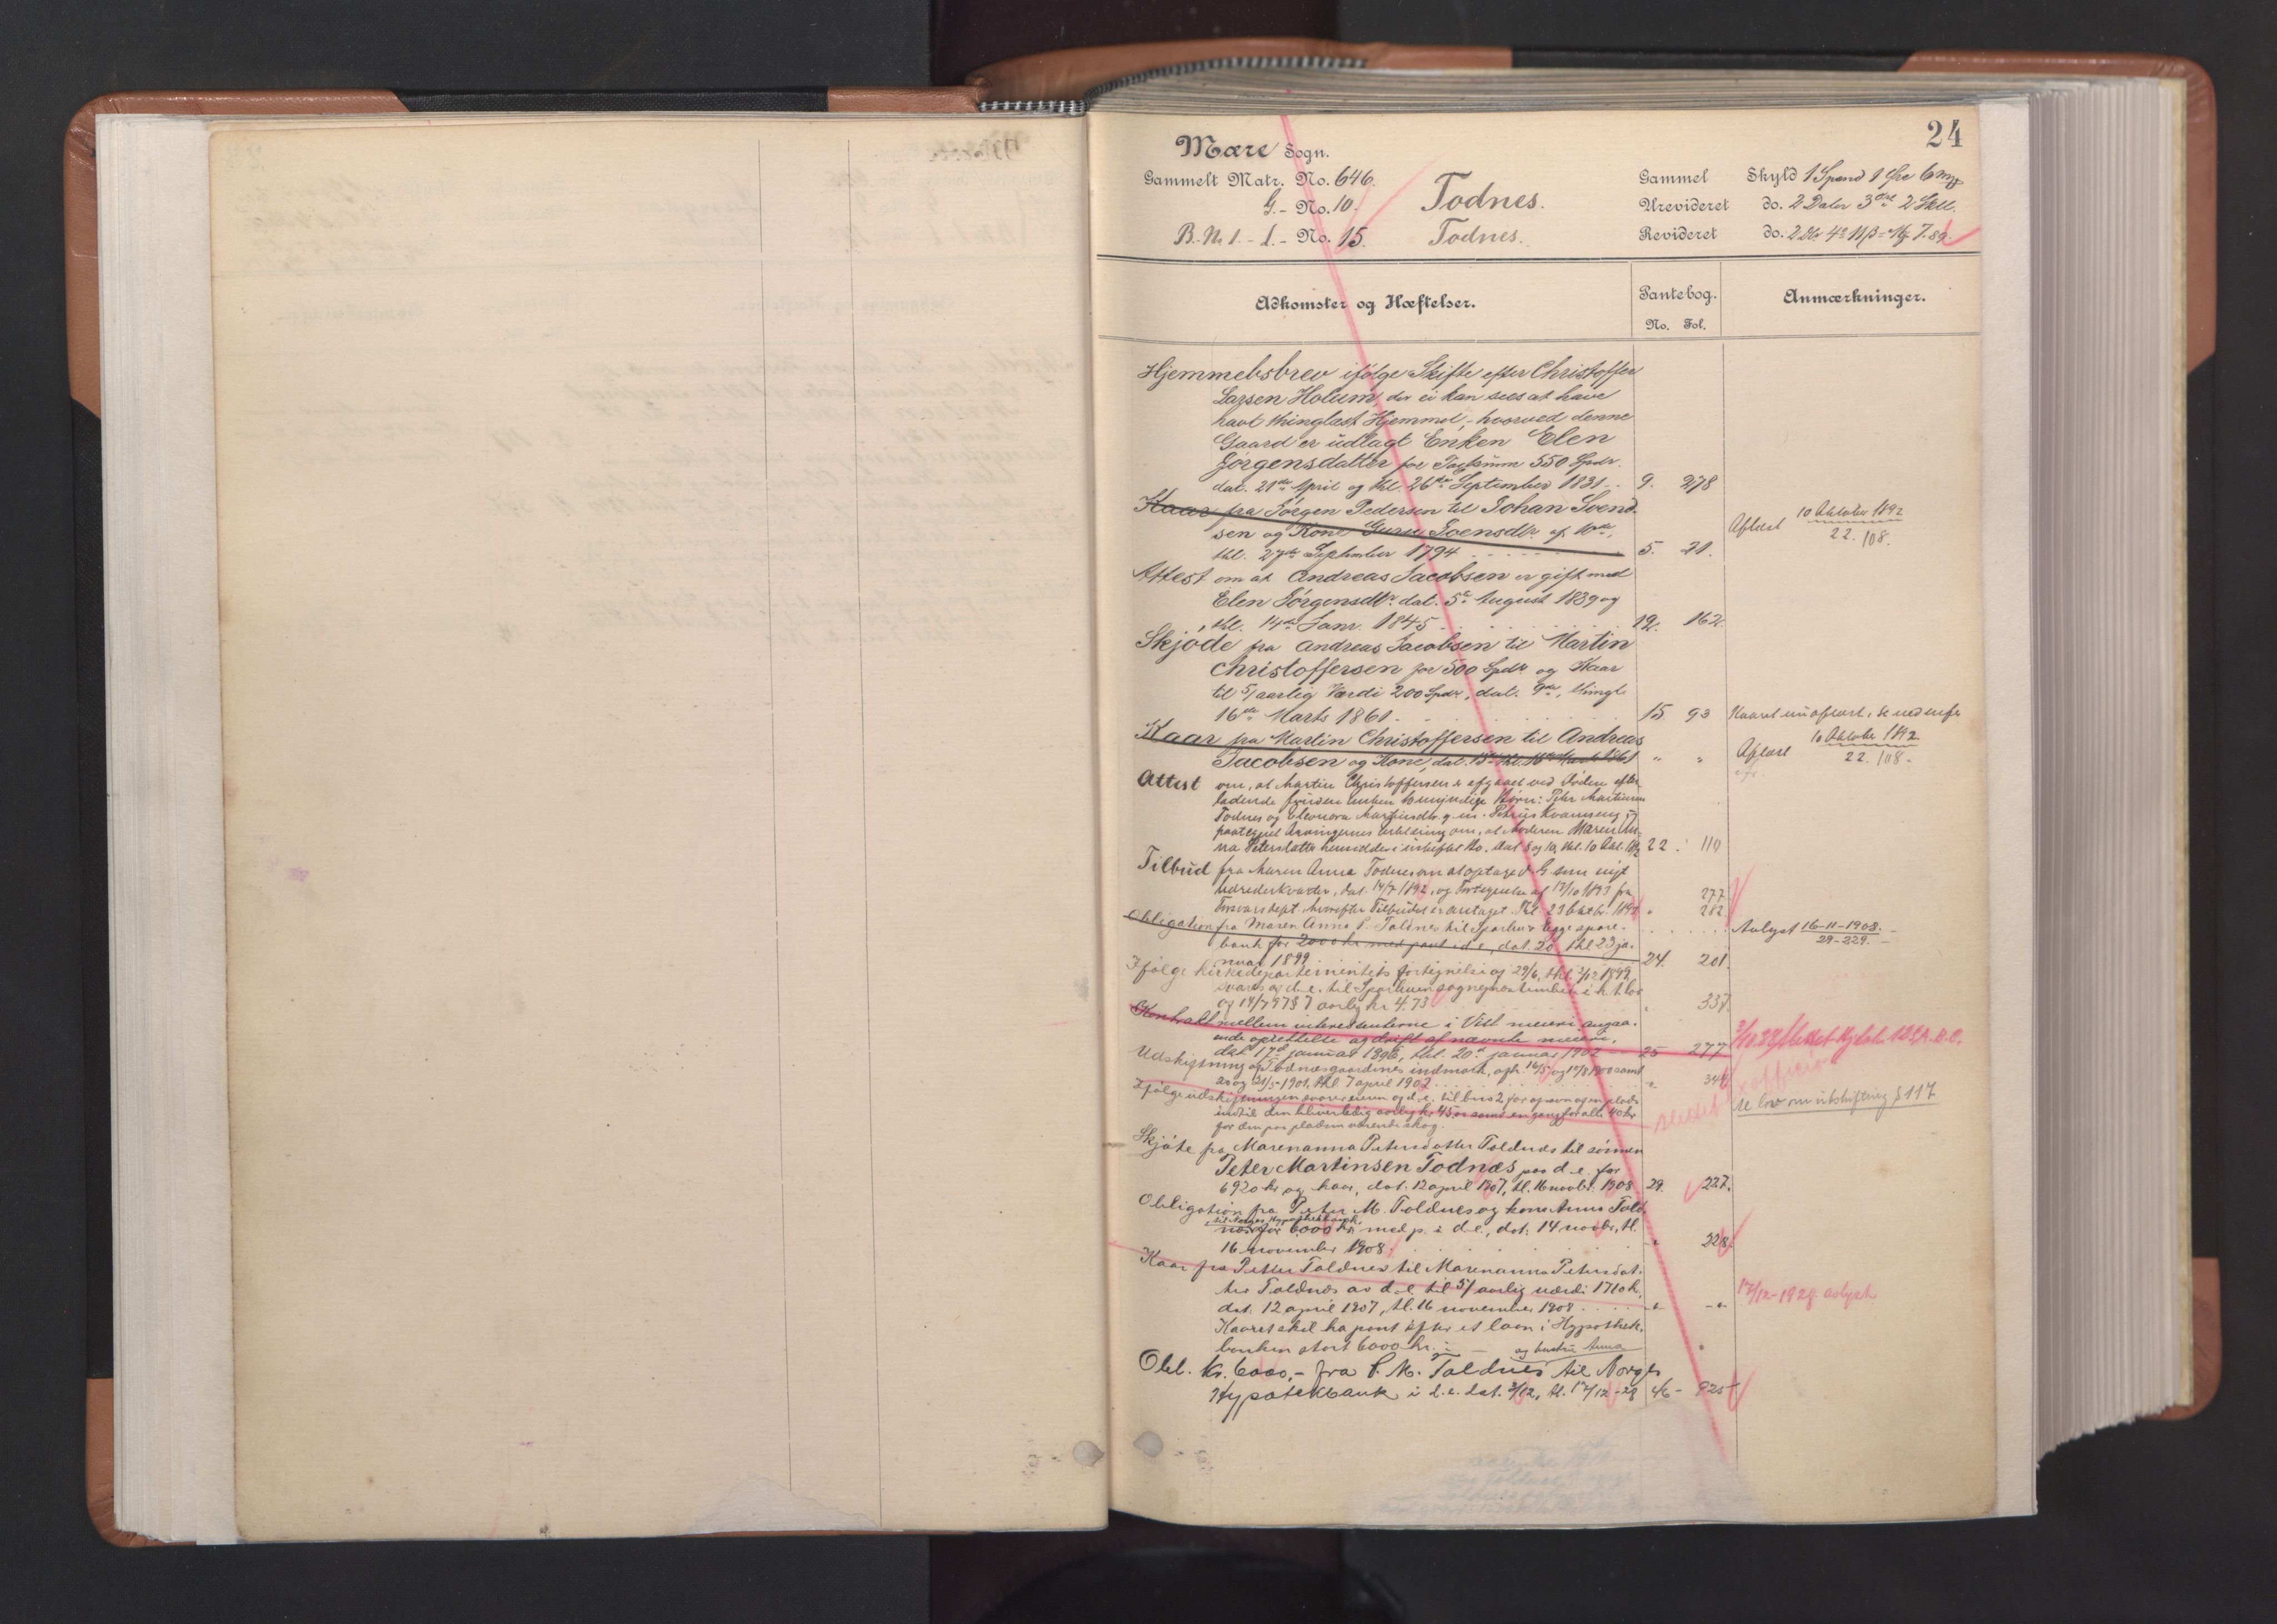 24
Mære Sogn.
Gammelt Matr. No. 646.
G.- No. 10.
B.-No 1. - L.- No. 15.
Todnes.
Todnes.
Gammel Skyld 1 Spand 1 Øre 6 mk
Urevideret do. 2 Daler 3 ort 2 Skill.
Revideret do. 2 Dlr 4 o 11 β = Mk 7.89.
Adkomster og Hæftelser.
Pantebog.
No. Fol.
Anmærkninger.
Hjemmelsbrev ifølge Skifte efter Christoffer
Larsen Holum, der ei kan sees at have
havt thinglæst Hjemmel, hvorved denne
Gaard er udlagt Enken Elen
Jørgensdatter for Taxtsum 550 Spdr.
dat. 21de April og thl. 26de September 1831 . 9. 278
Kaar fra Jørgen Pedersen til Johan Svend-
sen og Kone Guru Svensdtr. af 10de,
thl. 27de September 1794 5. 21.
Aflæst 10 Oktober 1892
22./108.
Attest om at Andreas Jacobsen er gift med
Elen Jørgensdtr. dat. 5te August 1839 og
thl. 14de Janr. 1845 12. 162.
Skjøde fra Andreas Jacobsen til Martin
Christoffersen for 500 Spdr. og Kaar
til 5/aarlig Værdi 200 Spdr., dat. 9de, thingl.
16de Marts 1861. 15 93 Kaaret er aflæst, se nedenfor
Kaar fra Martin Christoffersen til Andreas
Jacobsen og Kone, dat. 15de thl. 16de Marts 1861 " "
Aflæst 10 Oktober 1892
22./108.
Attest om, at Martin Christoffersen er afgaaet ved Døden efter-
ladende foruden Enken 2 myndige Børn: Peter Martinsen
Todnes og Eleonora Martinsdtr. g. m. Petrus Kvamseng og
paategnet Arvingernes Erklæring om, at Moderen Maren An-
na Petersdatter hensidder i uskiftet Bo. dat. 8 og 10, thl. 10 Okt. 1892 22. 110
Tilbud fra Maren Anna Todnes om at optage d. G. som nyt
Udrederkvarter, dat. 14/7 1892, og Fortegnelse af 13/10 1893 fra 277
Forsvarsdept. hvorefter Tilbudet er antaget. Thl. 23 Oktbr. 1893 " 282.
Obligation fra Maren Anna P. Toldnes til Sparbu & Egge spare-
bank for 2000 kr. med pant i d. e., dat. 20, thl. 23 ja-
nuar 1899. 24. 201.
Avlyst 16-11-1908.
29-229.
Ifølge kirkedepartementets fortegnelse af 29/6, thl. 2/12 1899,
svares av d. e. til Sparbuens sogneprestembede i h. t. lov
og 14/7 97 § 7 aarlig kr. 4.73 " 337.
Kontrakt mellem interessenterne i Vist meieri angaa-
ende oprettelse og drift af nævnte meieri,
dat. 17de januar 1896, thl. 20de januar 1902 25 277
Udskiftning af Todnesgaardenes indmark, afh. 16/5 og 17/8 1900 samt
20 og 21/5-1901, thl. 7 april 1902 " 344
Ifølge udskiftningen svarer eieren og d. e. til brno 2 for opsavn ogsn. plads
indtil den bliver ledig aarlig kr. 45,00 samt en gang for alle 40 kr.
for den paa pladsen værende skog.
slettet
se lov om utskiftning § 117
Skjøte fra Marenanna Petersdatter Toldnes til sønnen
Peter Martinsen Todnæs paa d. e. for
6920 kr. og kaar, dat. 12 april 1907, tl. 16 novbr. 1908 29. 227.
Obligation fra Peter M. Toldnes og kone Anna Told-
til Norges Hypothekbank
nes for 6000 kr. med p. i d. e., dat. 14 novbr., tl.
16 november 1908. " 228.
Kaar fra Petter Toldnes til Marenanna Petersdat-
ter Toldnes av d. e. til 5/aarlig værdi 1710 kr.
dat. 12 april 1907, tl. 16 november 1908 " -"-
17/12-1928 avlyst
Kaaret skal ha pant efter et laan i Hypothek-
banken stort 6000 kr. -
og hustru Anna
Obl. kr. 6000,- fra P. M. Toldnes til Norges
Hypotekbank i d. e. dat. 3/12, tl. 17/12-28 46- 925